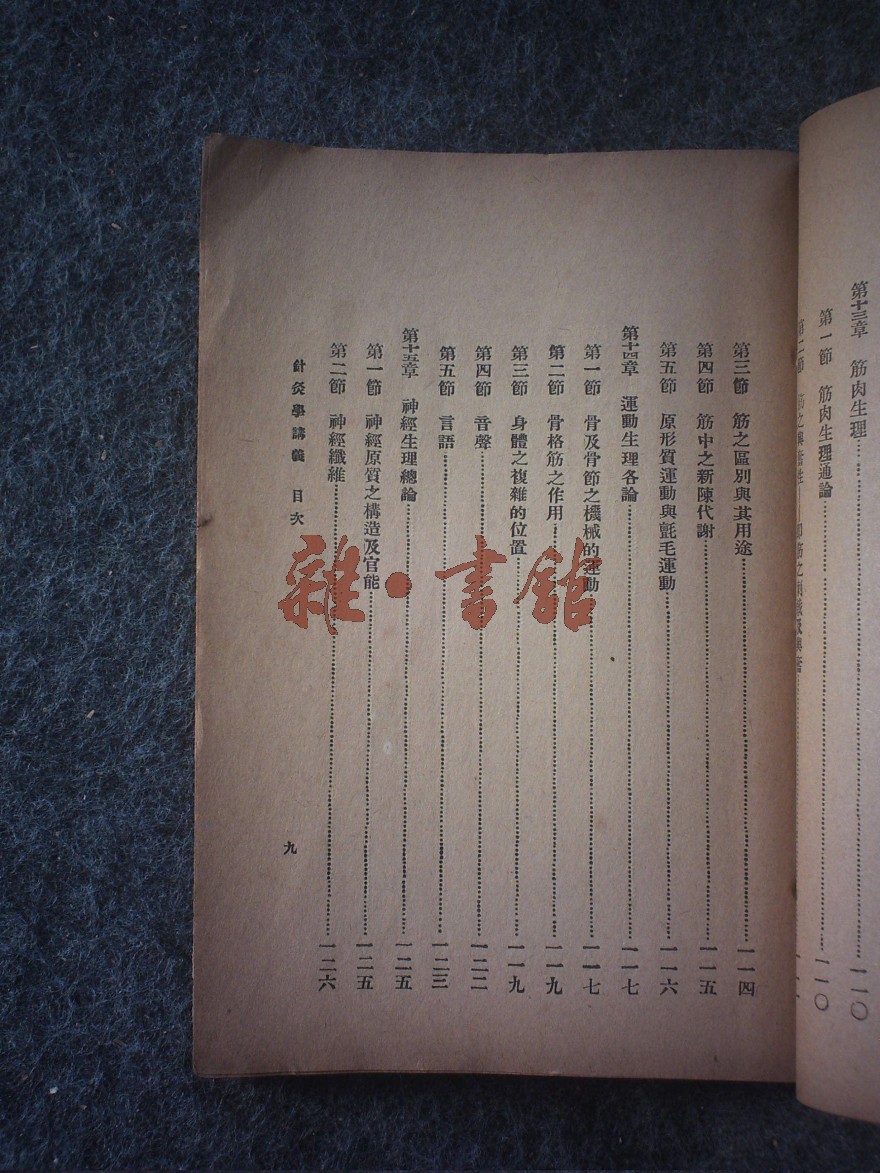 第十三章 筋肉生理……一一〇
第一節 筋肉生理通論……一一〇
第三節 筋之區別與其用途……一一四
第四節 筋中之新陳代謝……一一五
第五節 原形質運動與氈毛運動……一一六
第十四章 運動生理各論……一一七
第一節 骨及骨節之機械的運動……一一七
第二節 骨格筋之作用……一一九
第三節 身體之複雜的位置……一一九
第四節 音聲……一二二
第五節 言語……一二三
第十五章 神經生理總論……一二五
第一節 神經原質之構造及官能……一二五
第二節 神經纖維……一二六
針灸學講義 目次
九
雜·書館